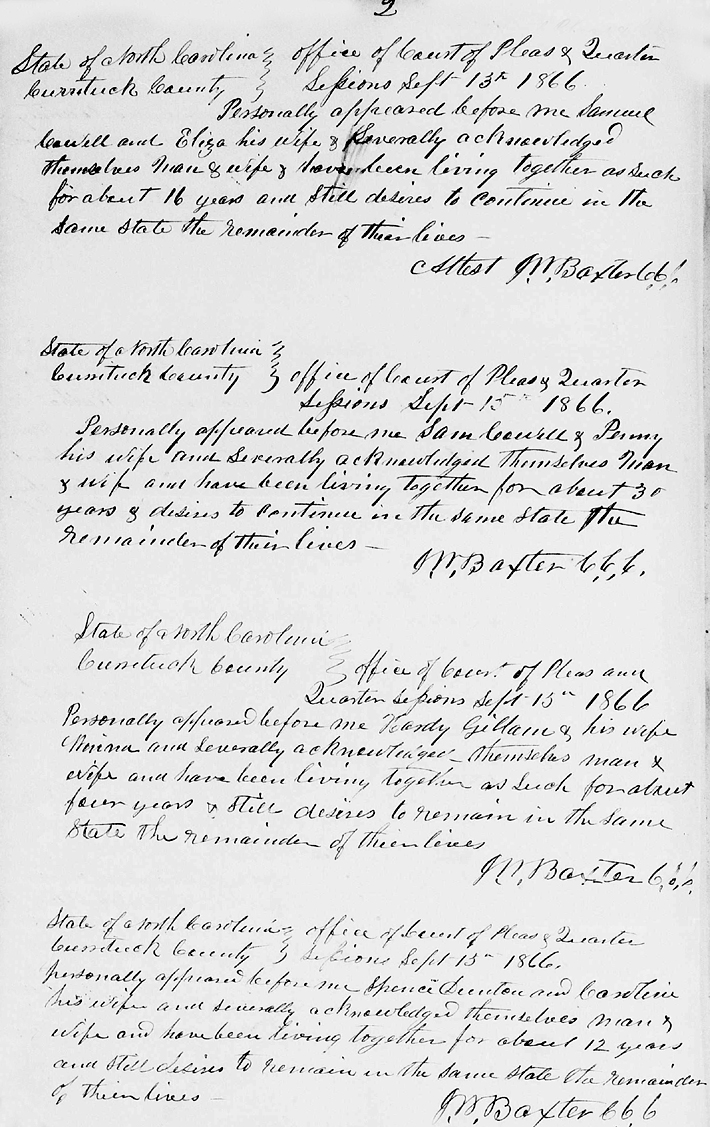 2
State of North Carolina } office of Court of Pleas & Quarter
Currituck County } Sessions Sept 13th 1866.
Personally appeared before me Samuel
Cowell and Eliza his wife & Severally acknowledged
themselves Man & wife & have been living together as Such
for about 16 years and Still desires to Continue in the
Same State the remainder of their lives —
Attest J.W. Baxter C.C.C.
State of North Carolina }
Currituck County } office of Court of Pleas & Quarter
Sessions Sept 15th 1866.
Personally appeared before me Sam Cowell & Penny
his wife and Severally acknowledged themselves Man
& wife and have been living together for about 30
years & desires to Continue in the Same State the
remainder of their lives —
J.W. Baxter C.C.C.
State of North Carolina }
Currituck County } office of Court of Pleas and
Quarter Sessions Sept 15th 1866
Personally appeared before me Hardy Gillam & his wife
and Severally acknowledged themselves man &
wife and have been living together as Such for about
four years & Still desires to remain in the Same
State the remainder of their lives
J.W. Baxter C.C.C.
State of North Carolina } office of Court of Pleas & Quarter
Currituck County } Sessions Sept 15th 1866.
personally appeared before me Spence and Caroline
his wife and Severally acknowledged themselves man &
wife and have been living together for about 12 years
and Still desires to remain in the Same State the remainder
of their lives —
J.W. Baxter C.C.C.